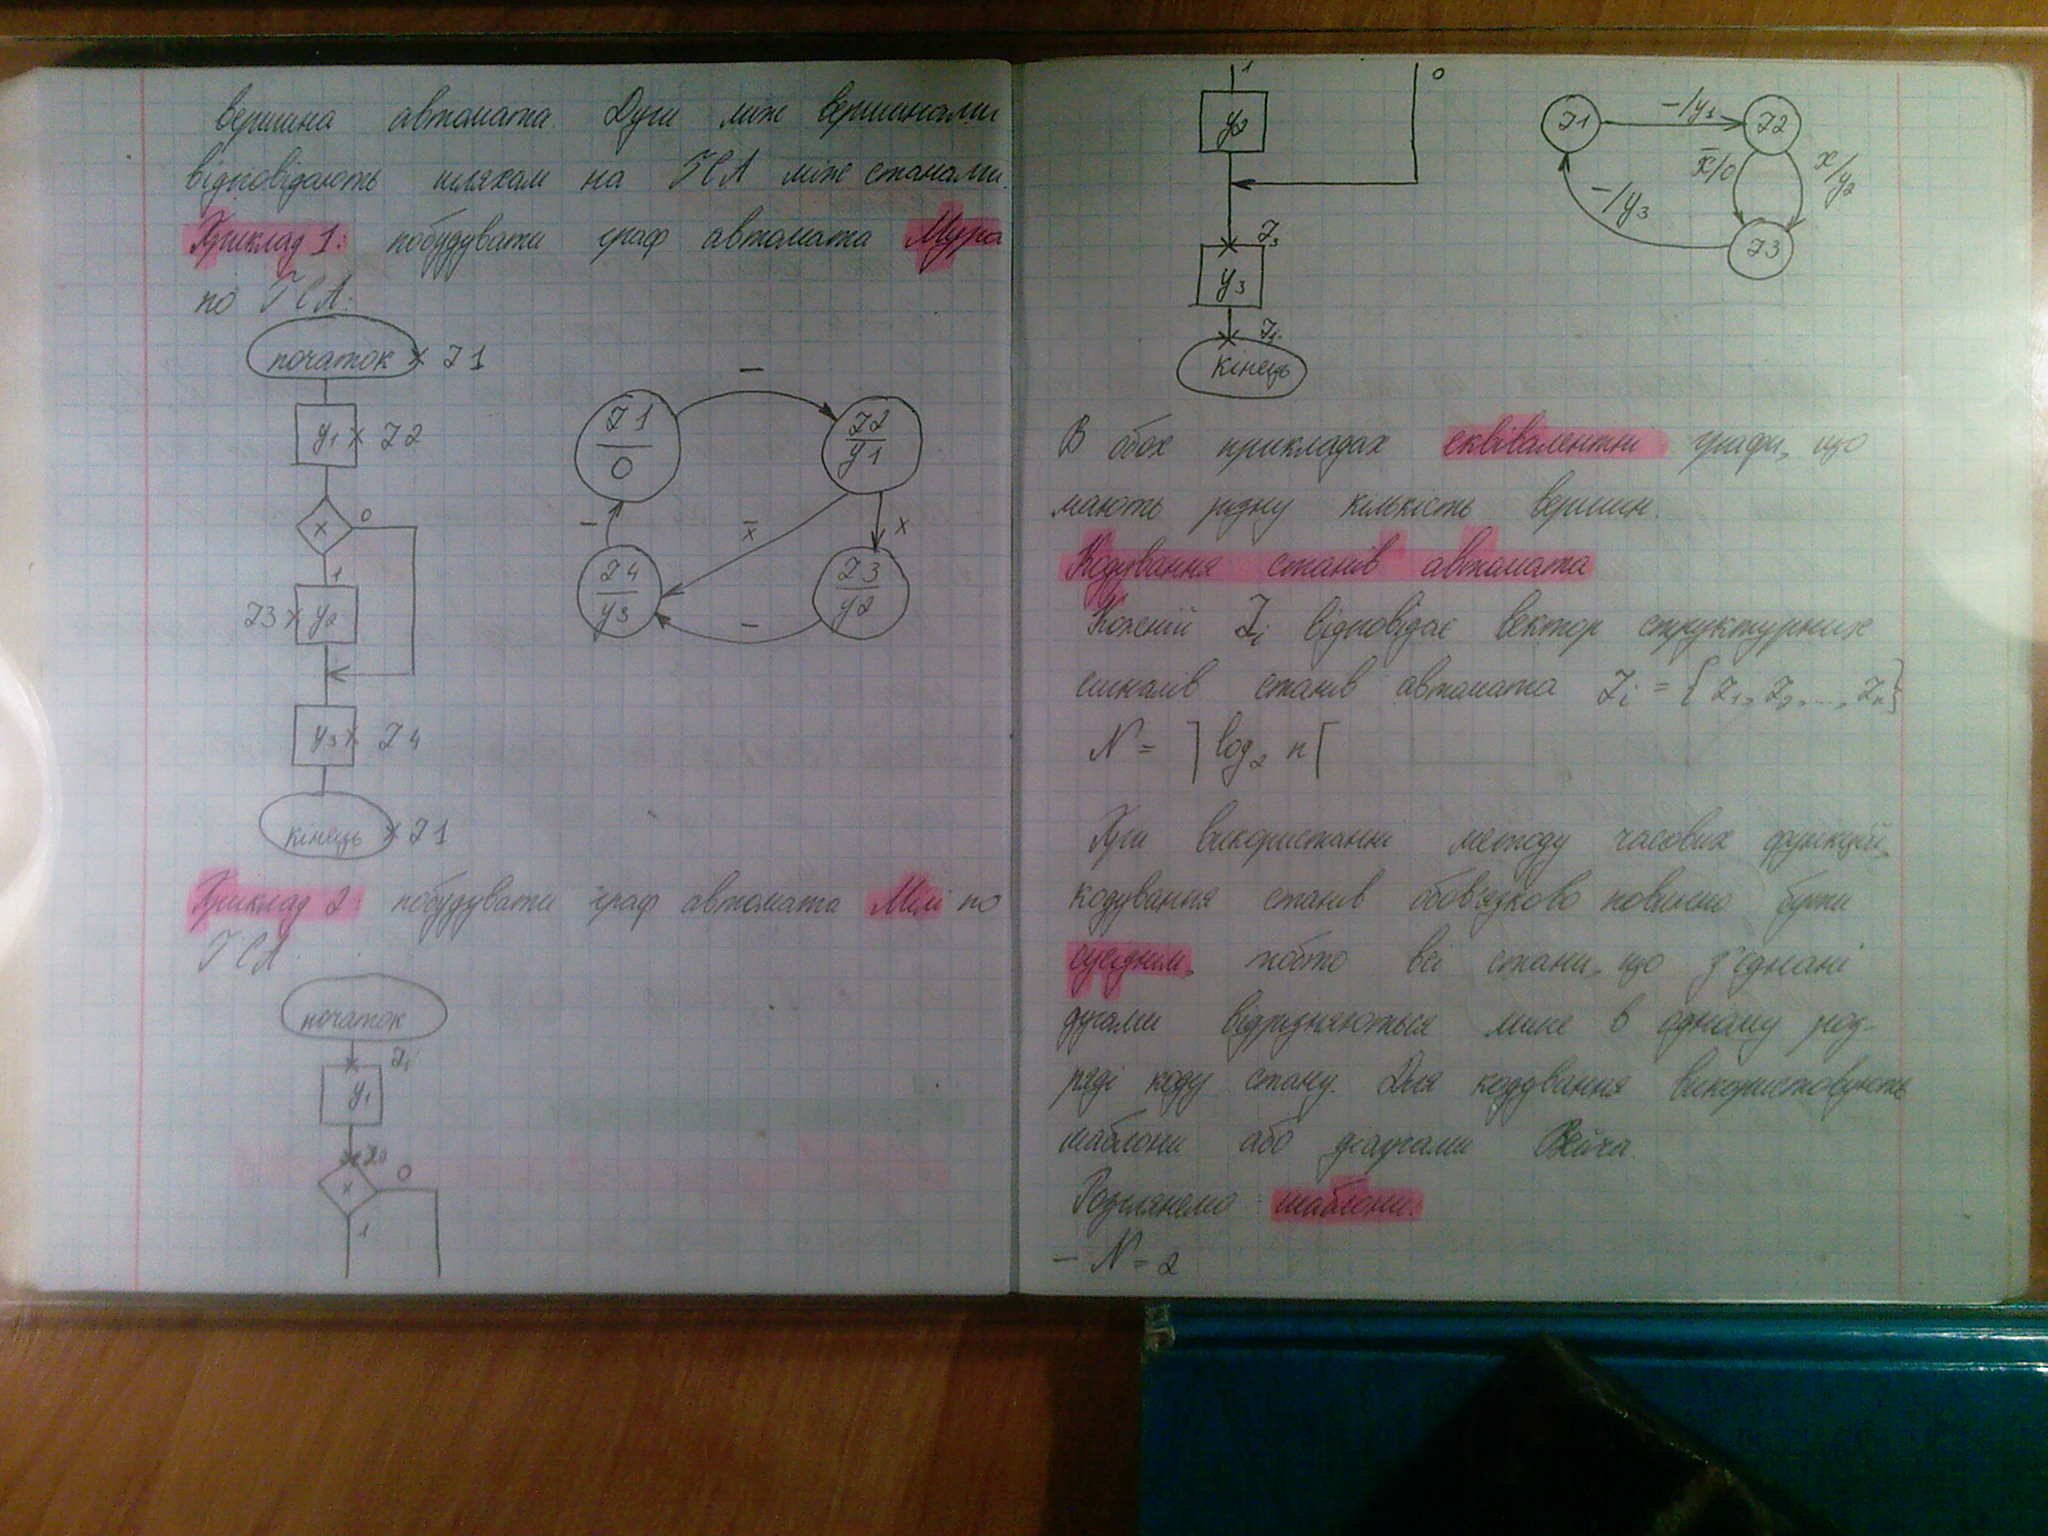 вершина автомата. Дуги між вершинами
відповідають шляхам на ГСА між станами.
Приклад 1: побудувати граф автомата Мура
по ГСА:
початок × Z1
y1 × Z2
x 0
1
Z3 × y2
y3 × Z4
кінець × Z1
Z1
0
–
Z2
y1
–
x̄
x
Z4
y3
Z3
y2
–
Приклад 2: побудувати граф автомата Мілі по
ГСА.
початок
Z1
y1
Z2
x 0
1
1 0
y2
Z3
y3
Z1
кінець
Z1 –/y1 Z2
x̄/0 x/y2
–/y3
Z3
В обох прикладах еквівалентні графи, що
мають різну кількість вершин.
Кодування станів автомата
Кожній Zi відповідає вектор структурних
сигналів станів автомата Zi = { Z1, Z2, ..., Zn}
N = ⌉ log2 n ⌈
При використанні методу часових функцій,
кодування станів обов'язково повинно бути
сусіднім, тобто всі стани, що з'єднані
дугами відрізняються лише в одному роз-
ряді коду стану. Для кодування використовують
шаблони або діаграми Вейча.
Розглянемо шаблони.
– N = 2